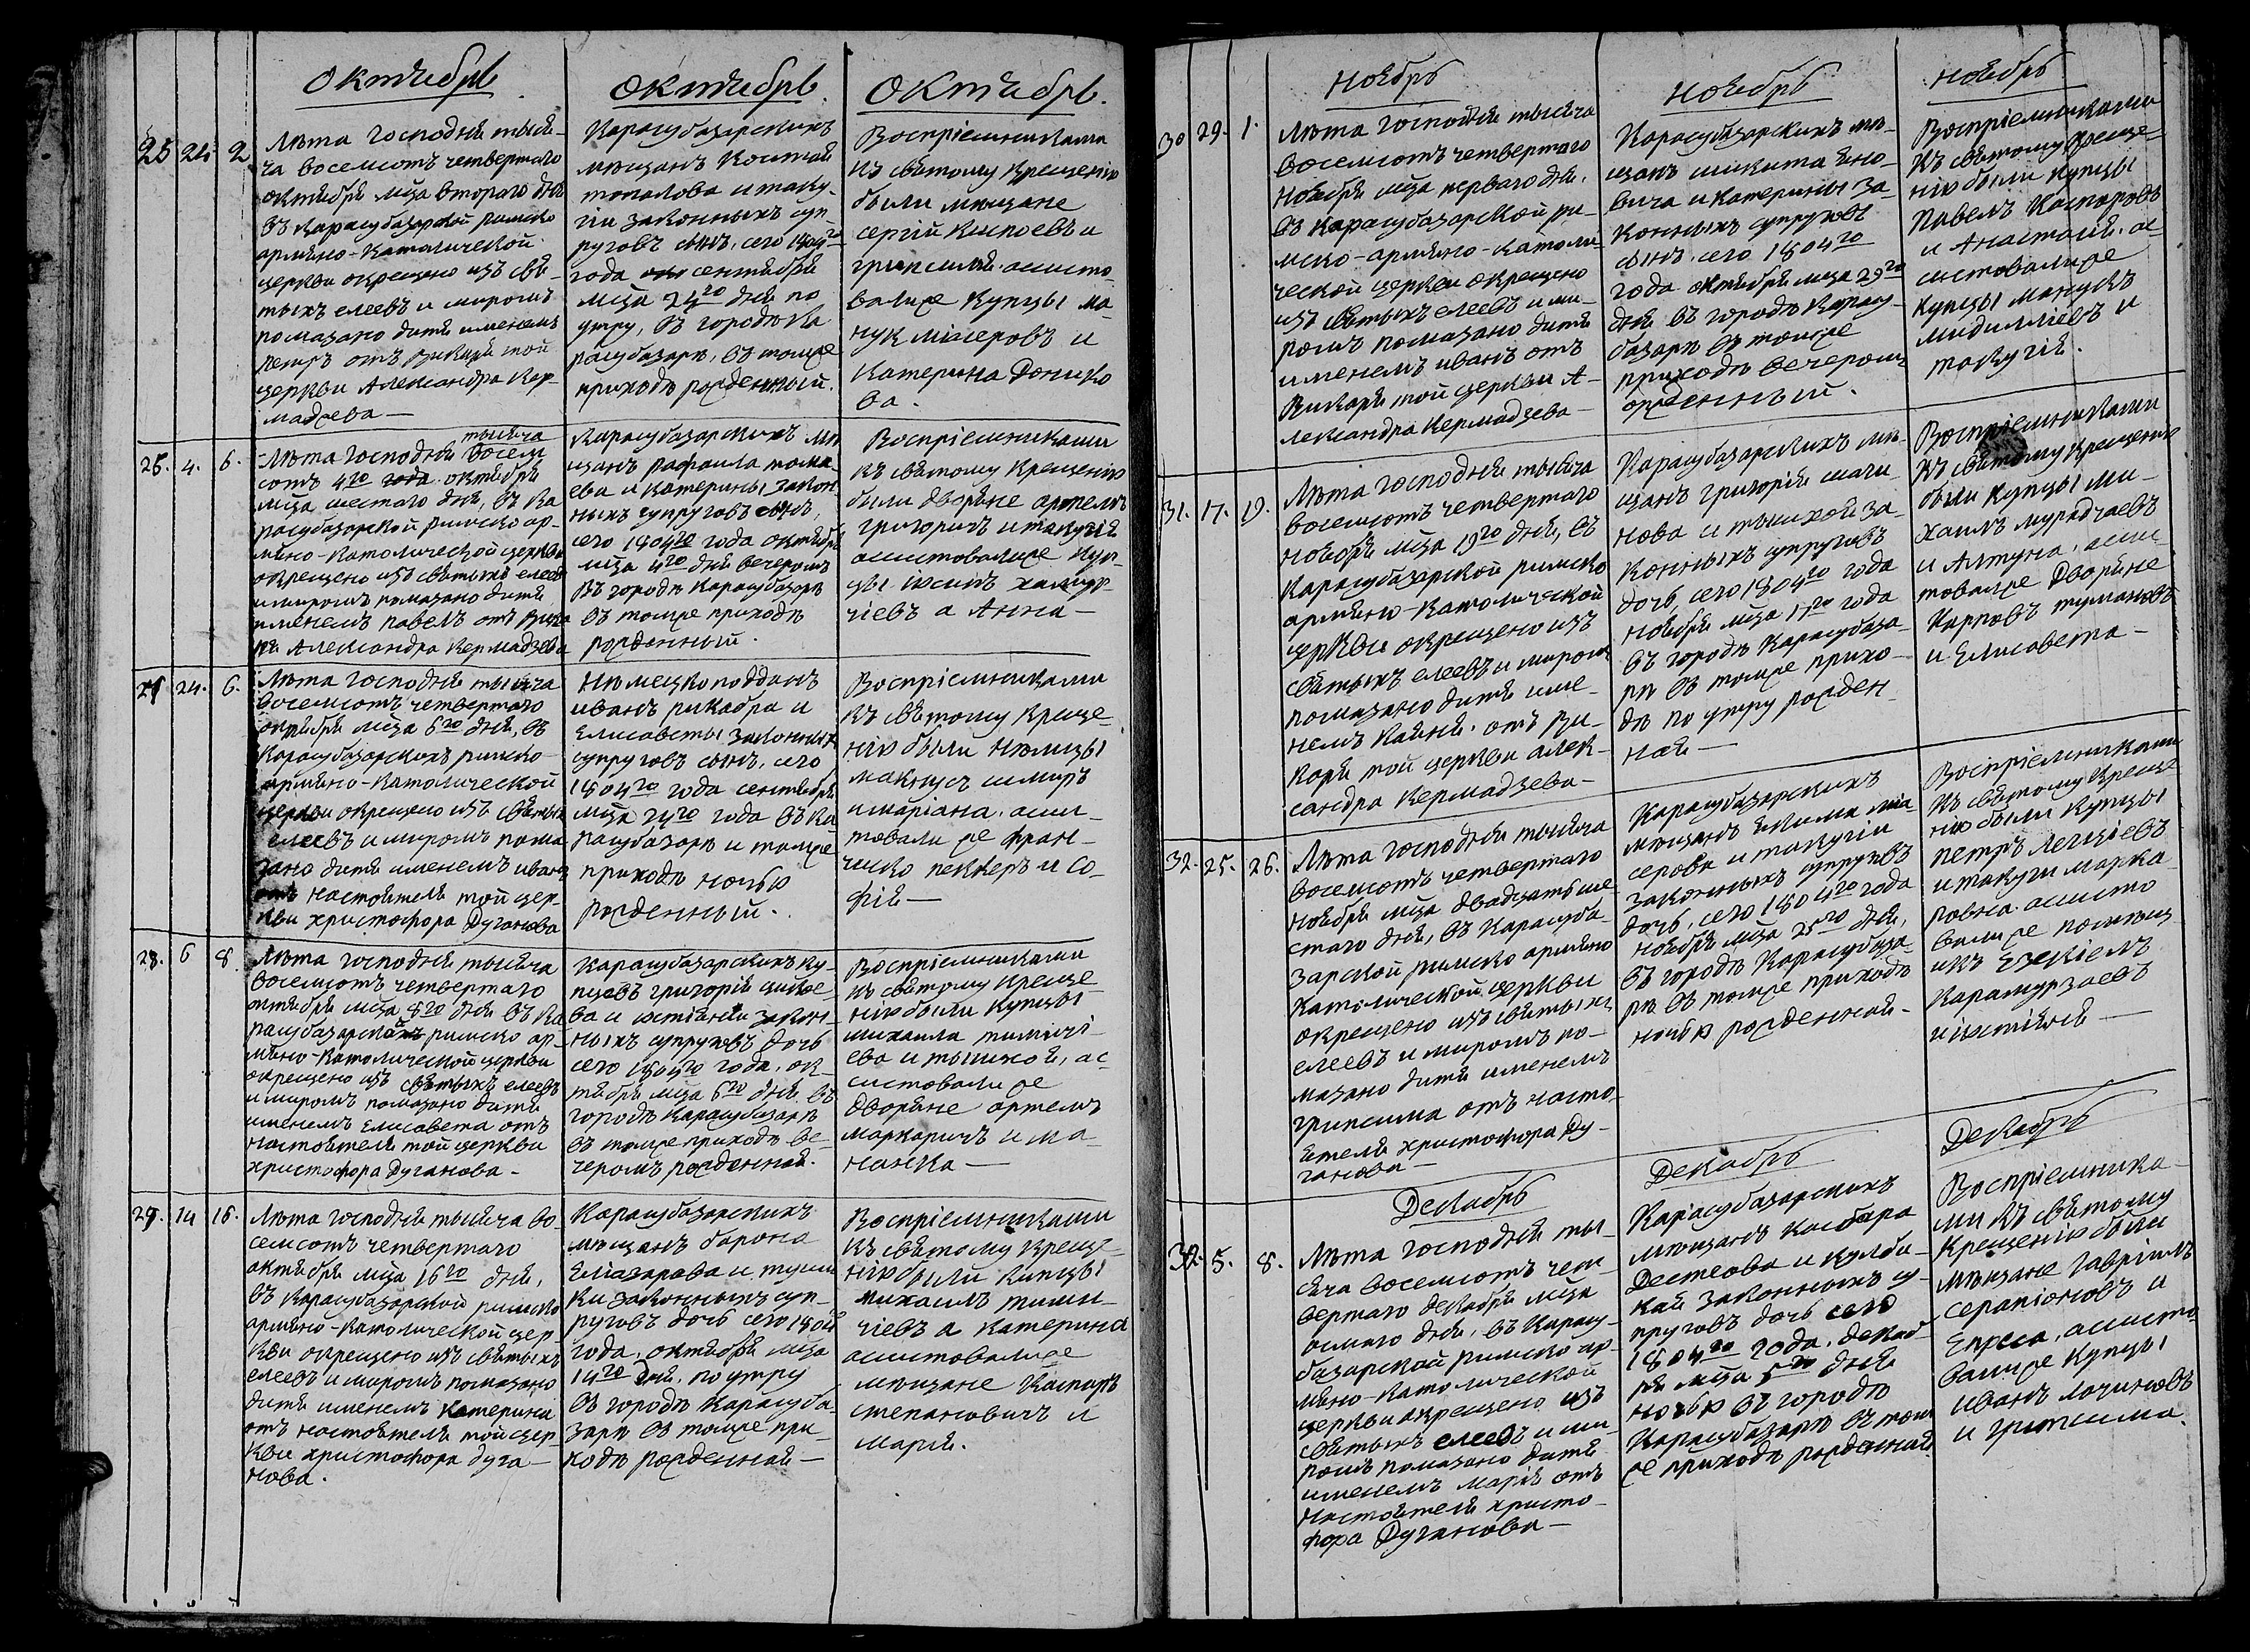 Октября
25 24 2
Лѣта Господня тыся-
ча восемсотъ четвертаго
октября мца втораго дня
въ карасубазарской римско
армяно-католической
церкви окрещено изъ свя-
тыхъ елеевъ и миромъ
помазано дитя именемъ
петръ отъ викарія той
церкви Александра Кер-
мадзева —
Октября
Карасубазарскихъ
мѣщанъ
топалова и таку-
гіи законныхъ суп-
руговъ сынъ, сего 1804го
года сентября
мца 24го дня по
утру, въ городѣ Ка
расубазарѣ, въ томже
приходѣ рожденный.
Октября.
Воспріемниками
къ святому крещенію
были мѣщане
сергій и
грипсимія. ассисто
валиже купцы ма-
нук місеровъ и
катерина
ва.
26. 4. 6.
Лѣта господня тысяча восем
сотъ 4го года октября
мца шестаго дня, въ ка
расубазарской римско ар-
мяно-католической церкви
окрещено изъ святыхъ елеевъ
и миромъ помазано дитя
именемъ павелъ отъ вика
рія Александра Кермадзева
Карасубазарскихъ мѣ
щанъ рафаила тома-
ева и катерины закон
ныхъ супруговъ сынъ,
сего 1804го года октября
мца 4го дня вечеромъ
въ городѣ карасубазарѣ
въ томже приходѣ
рожденный.
Воспріемниками
къ святому крещенію
были дворяне артемъ
григоричъ и такугія
ассистовалиже куп-
цы іосипъ
чіевъ а Анна —
27 24. 6.
Лѣта господня тысяча
восемсотъ четвертаго
октября мца 6го дня, въ
карасубазарскихъ римско-
армяно-католической
церкви окрещено изъ святыхъ
елеевъ и миромъ пома
зано дитя именемъ иванъ
отъ настоятеля той цер-
кви христофора Дуганова
Нѣмецко подданъ
иванъ рикабра и
Елисаветы законныхъ
супруговъ сынъ, сего
1804го года сентября
мца 24го года въ ка
расубазарѣ и томже
приходѣ ночью
рожденный.
Воспріемниками
къ святому креще-
нію были нѣмцы
макнусъ шмиръ
и маріана. асси-
товали же фран-
циско пекнеръ и со-
фія —
28. 6 8.
Лѣта господня тысяча
восемсотъ четвертаго
октября мца 8го дня въ ка
расубазарской римско ар-
мяно-католической церкви
окрещено изъ святыхъ елеевъ
и миромъ помазано дитя
именемъ Елисавета отъ
настоятеля той церкви
христофора Дуганова —
Карасубазарскихъ ку-
пцевъ григорія
ва и закон-
ныхъ супруговъ дочь
сего 1804го года, ок-
тября мца 6го дня, въ
городѣ карасубазарѣ
въ томже приходѣ ве-
черомъ рожденная.
Воспріемниками
къ святому креще
нію были купцы
михаила
ева и ас
систовали же
дворяне артемъ
маркаричъ и ма-
нанка —
29. 14 16.
Лѣта господня тысяча во-
семсотъ четвертаго
октября мца 16го дня,
въ карасубазарской римско
армяно-католической цер-
кви окрещено изъ святыхъ
елеевъ и миромъ помазано
дитя именемъ катерина
отъ настоятеля той цер-
кви христофора дуга-
нова.
Карасубазарскихъ
мѣщанъ барона
Еліазарова и
ки законныхъ суп-
руговъ дочь сего 1804
года, октября мца
14го дня. по утру
въ городѣ карасуба-
зарѣ въ томже при-
ходѣ рожденная —
Воспріемниками
къ святому креще-
нію были купцы
михаилъ
чіевъ а катерина
ассистовалиже
мѣщане каспаръ
степановичъ и
марія.
Ноябрь
30 29. 1.
Лѣта господня тысяча
восемсотъ четвертаго
ноября мца перваго дня,
въ карасубазарской ри-
мско-армяно-католи-
ческой церкви окрещено
изъ святыхъ елеевъ и ми-
ромъ помазано дитя
именемъ иванъ отъ
викарія той церкви А-
лександра Кермадзева —
Ноябрь
Карасубазарскихъ мѣ-
щанъ никита яно-
вича и катерины за-
конныхъ супруговъ
сынъ, сего 1804го
года октября мца 29го
дня въ городѣ карасу-
базарѣ въ томже
приходѣ вечеромъ
орженный.
Ноябрь
Воспріемниками
къ святому креще-
нію были купцы
Павелъ Каспаровъ
и Анастасія. ас
систовалиже
купцы манукъ
и
такугія.
31. 17. 19.
Лѣта господня тысяча
восемсотъ четвертаго
ноября мца 19го дня, въ
карасубазарской римско
армяно-католической
церкви окрещено изъ
святыхъ елеевъ и миромъ
помазано дитя име-
немъ отъ ви-
карія той церкви алек-
сандра Кермадзева —
Карасубазарскихъ мѣ-
щанъ григорія
нова и за-
конныхъ супруговъ
дочь, сего 1804го года
ноября мца 17го года
въ городѣ Карасубаза-
рѣ въ томже прихо-
дѣ по утру рожден-
ная —
Воспріемниками
къ святому крещенію
были купцы ми-
хаилъ мурадчаевъ
и Алтуна, ассис
товалиже дворяне
Карповъ тумановъ
и Елисавета —
32. 25. 26.
Лѣта господня тысяча
восемсотъ четвертаго
ноября мца двадцать ше
стаго дня, въ карасуба-
зарской римско армяно
католической церкви
окрещено изъ святыхъ
елеевъ и миромъ по-
мазано дитя именемъ
грипсима отъ насто-
ятеля христофора Ду-
ганова —
Карасубазарскихъ
мѣщанъ якима міа
серова и такугіи
законныхъ супруговъ
дочь, сего 1804го года
ноября мца 25го дня,
въ городѣ Карасубаза
рѣ въ томже приходѣ
ночью рожденная —
Воспріемниками
къ святому креще
нію были купцы
петръ
и такуги марка
ровна. ассисто
вали же помѣщ
икъ Езекіелъ
Карамурзаевъ
и —
Декабрь
32. 5. 8.
Лѣта господня ты-
сяча восемсотъ чет-
вертаго декабря мца
осмаго дня, въ Карасу-
базарской римско ар-
мяно-католической
церкви окрещено изъ
святыхъ елеевъ и ми-
ромъ помазано дитя
именемъ марія отъ
настоятеля христо-
фора Дуганова —
Декабрь
Карасубазарскихъ
мѣщанъ каспара
и кулба-
кай законныхъ су-
пруговъ дочь сего
1804го года, декаб-
ря мца 5го дня
ночью въ городѣ
Карасубазарѣ въ том
же приходѣ рожденная
Декабрь
Воспріемника-
ми къ святому
крещенію были
мѣщане Гавріилъ
серапіоновъ и
ассисто
валиже купцы
иванъ лочиновъ
и грипсима.